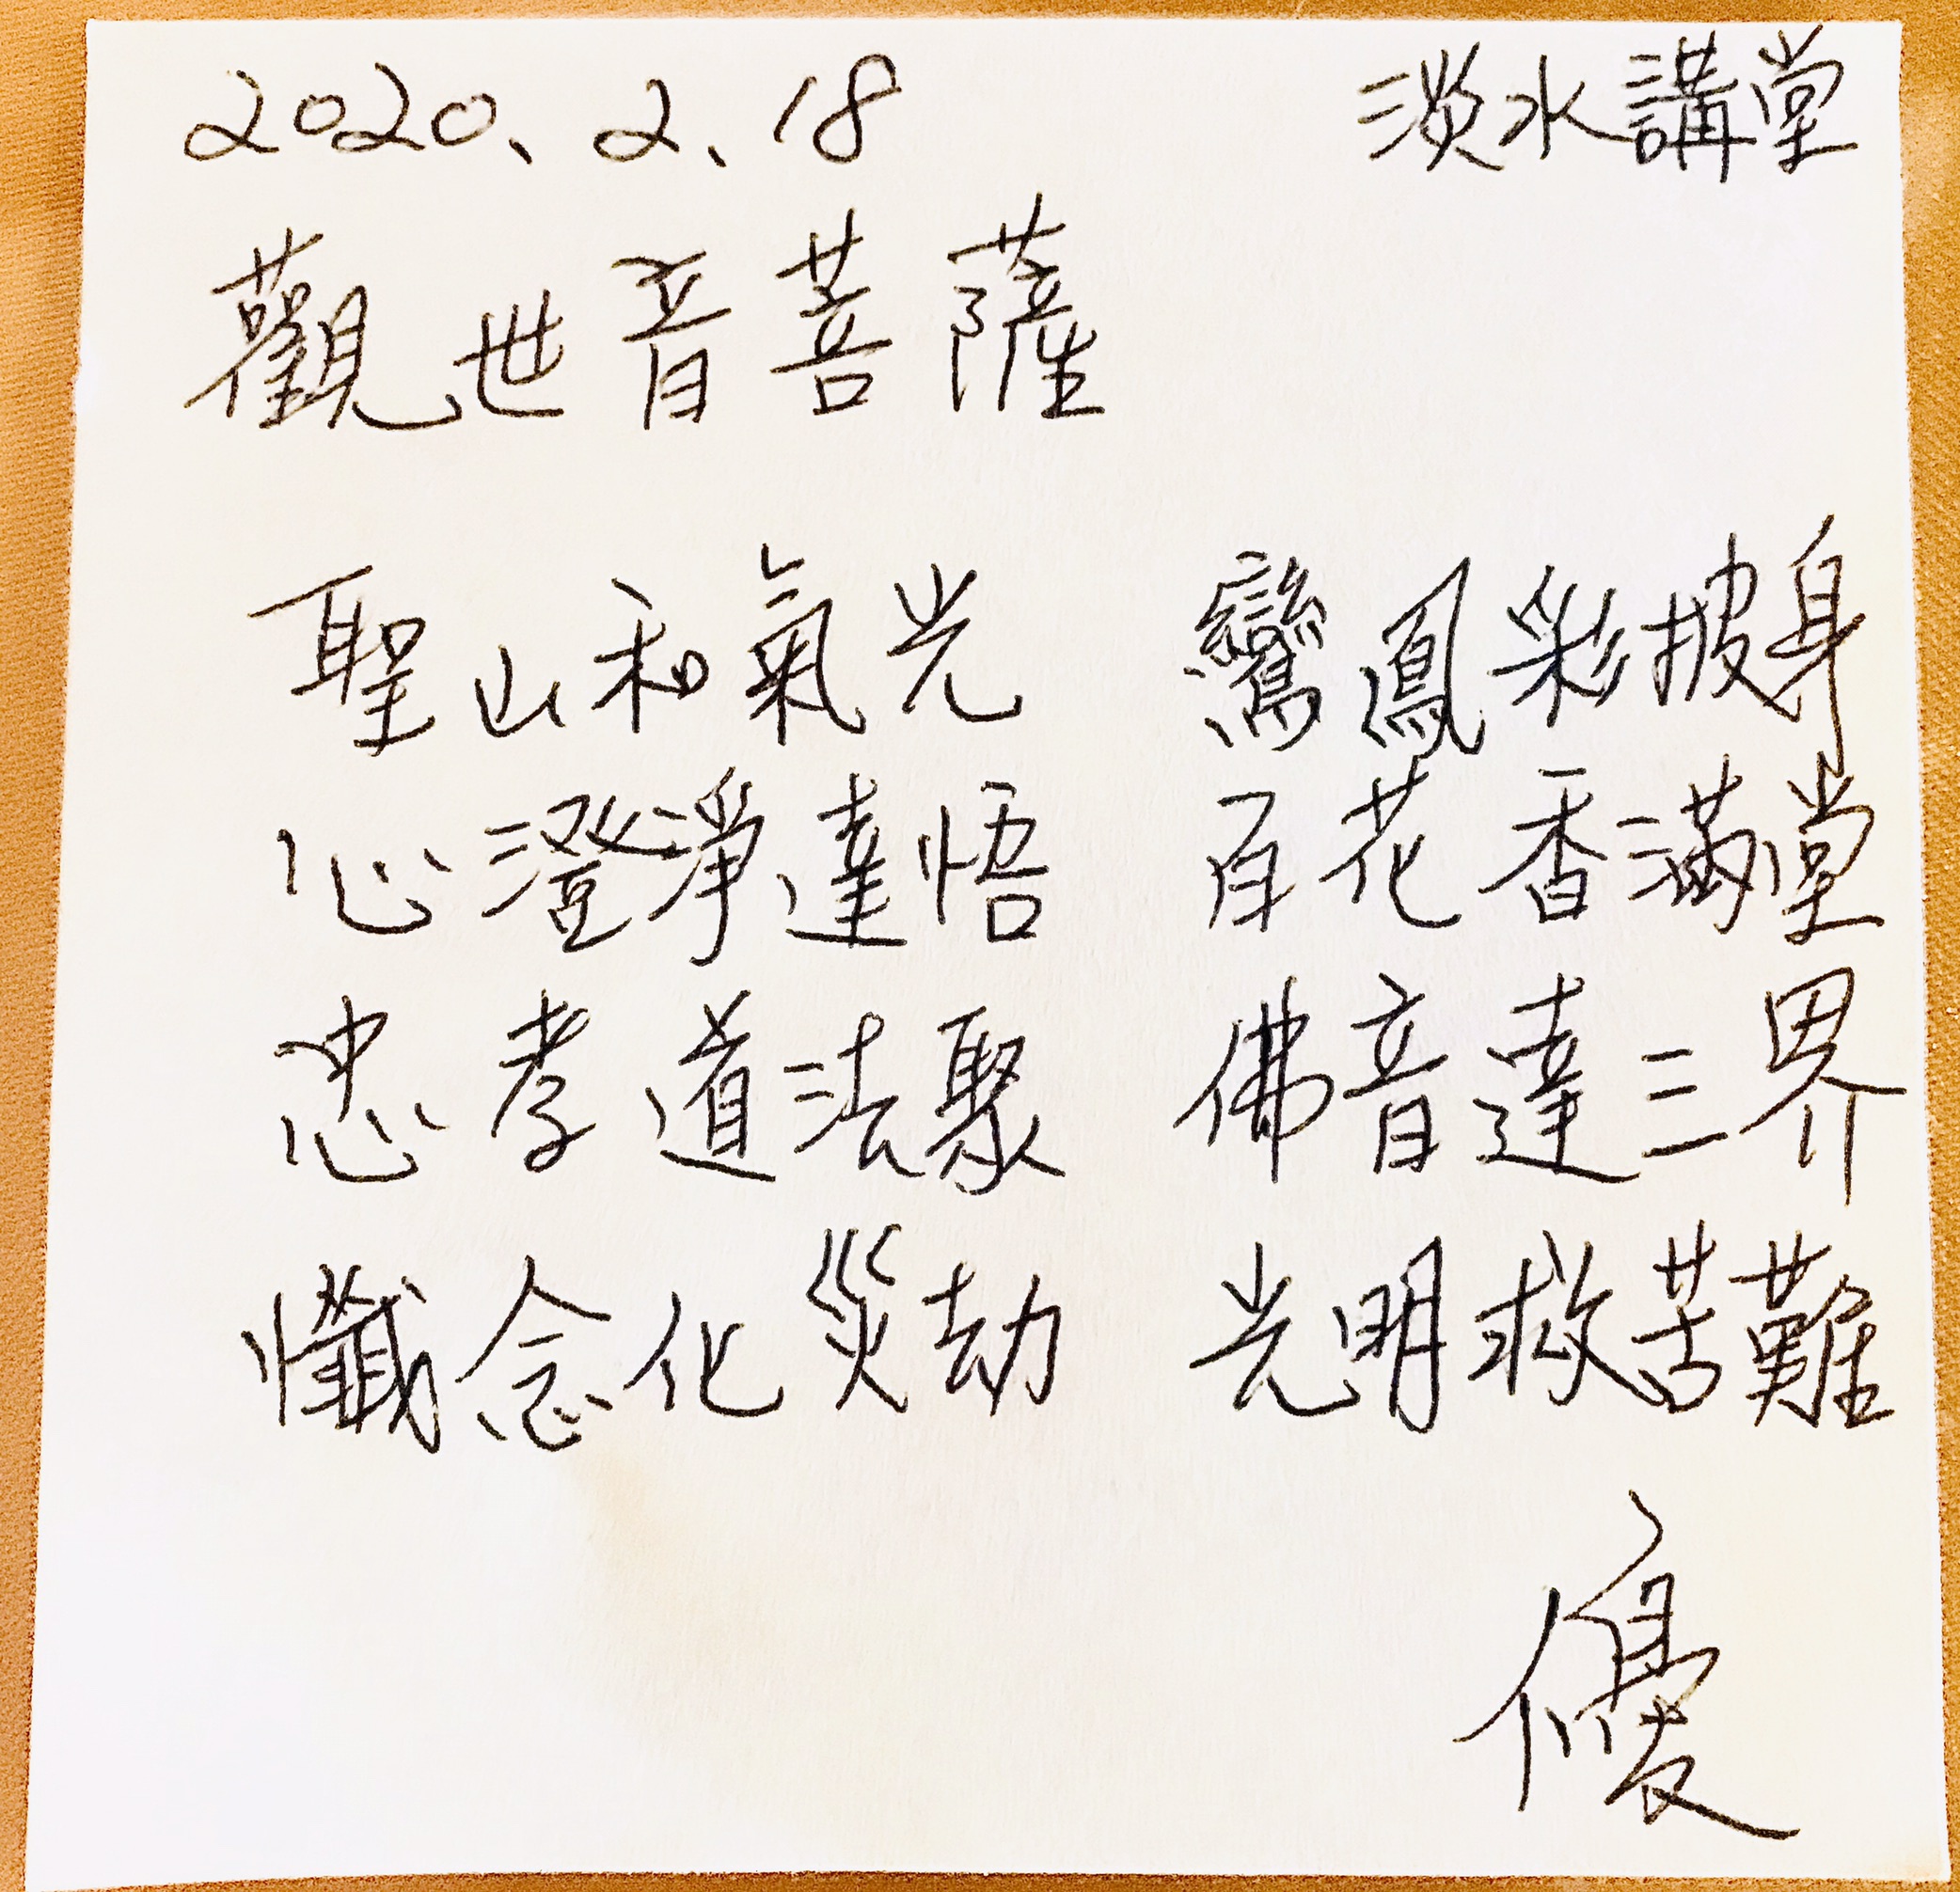 2020、2、18 淡水講堂
觀世音菩薩
聖山和氣光 鸞鳳彩披身
心澄淨達悟 百花香滿堂
忠孝道法聚 佛音達三界
懺念化災劫 光明救苦難
優